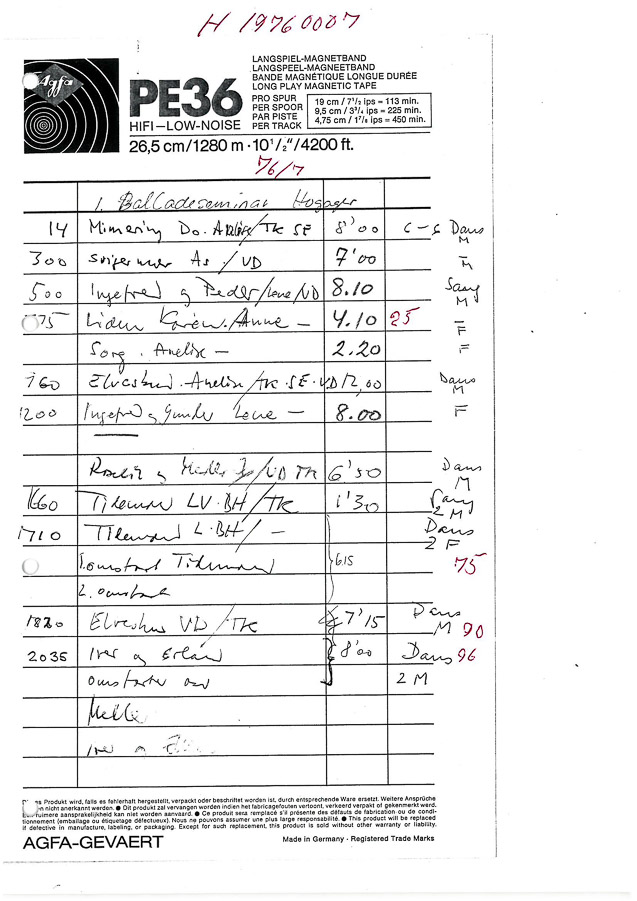 H 19760007
Agfa
PE36
HIFI–LOW-NOISE
LANGSPIEL-MAGNETBAND
LANGSPEEL-MAGNEETBAND
BANDE MAGNÉTIQUE LONGUE DURÉE
LONG PLAY MAGNETIC TAPE
PRO SPUR
PER SPOOR
PAR PISTE
PER TRACK
19 cm / 7 1/2 ips = 113 min.
9,5 cm / 3 3/4 ips = 225 min.
4,75 cm / 1 7/8 ips = 450 min.
26,5 cm/1280 m · 10 1/2"/4200 ft.
76/7
1. Balladeseminar Hogager
14 Mimering Do. /TK SE 8'00 C – S Dans M
300 As /VD 7'00 – M
500 Ingefred og Peder/Lene/VD 8.10 Sang M
Liden Karen. Anne – 4.10 25 – F
Sorg . Anelise – 2.20 – F
760 /TK · SE · VD 12,00 Dans M
1200 Ingefred og Gunder Lene – 8.00 – F
/VD TK 6'50 Dans M
1660 Tideman LV · BH / TK 1'30 Sang 2 M
1710 Tideman L · BH / – Dans 2 F
1. omstart Tideman 6.15 75
2. omstart
1820 VD / TK 7'15 Dans M 90
2035 Iver og Erland 8'00 Dans 96
2 M
Iver og
Produkt wird, falls es fehlerhaft hergestellt, verpackt oder beschriftet worden ist, durch entsprechende Ware ersetzt. Weitere Ansprüche
nicht anerkannt werden. ● Dit produkt zal vervangen worden indien het fabricagefouten vertoont, verkeerd verpakt of gekenmerkt werd.
ruimere aansprakelijkheid kan niet worden aanvaard. ● Ce produit sera remplacé s'il présente des défauts de fabrication ou de condi-
tionnement (emballage ou étiquetage défectueux). Nous ne pouvons assumer une plus large responsabilité. ● This product will be replaced
if defective in manufacture, labeling, or packaging. Except for such replacement, this product is sold without other warranty or liability.
AGFA-GEVAERT
Made in Germany · Registered Trade Marks